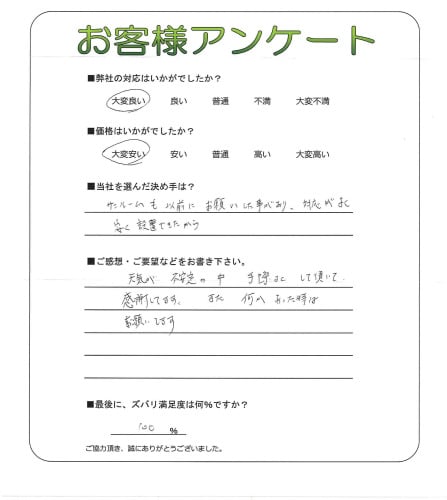 お客様アンケート
■弊社の対応はいかがでしたか？
大変良い 良い 普通 不満 大変不満
■価格はいかがでしたか？
大変安い 安い 普通 高い 大変高い
■当社を選んだ決め手は？
サンルームも以前にお願いした事があり、対応がよく
安く設置できたから
■ご感想・ご要望などをお書き下さい。
天気が不安定の中 手際よくして頂いて
感謝してます。また何かあった時は
お願いします
■最後に、ズバリ満足度は何％ですか？
100 ％
ご協力頂き、誠にありがとうございました。